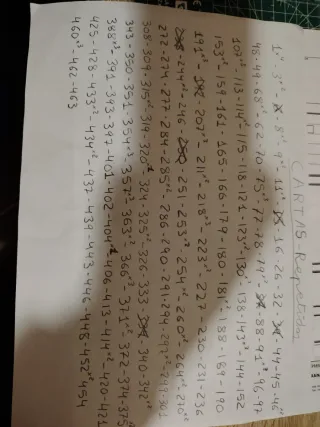 CARTAS - Repetidas
1" 3"² - 8" 9"² 11"² 16 - 26 - 32 - 44 - 45 - 46"²
48 - 49 - 68"² 62 - 70 - 75"² 77 - 78 - 79"² 88 - 91"² 96 - 97
107"² - 113 - 114"² - 115 - 118 - 122 - 123"² - 130"² - 138 - 143"² - 144 - 152
153"² - 159 - 161 - 165 - 166 - 179 - 180 - 181"² - 188 - 189 - 190
191"² 207"² 211"² 218"² - 223"² 227 - 230 - 231 - 236
244"² - 246 - 251 - 253"² 254"² 260"² 264"² 270"²
272 - 274 - 277 - 284 - 285"² - 286 - 290 - 291 - 294 - 297"² - 299 - 301
308 - 309 - 315"² 319 - 320"² 324 - 325"² - 326 - 333 340 - 342"²
343 - 350 - 351 - 354"² - 357"² 363"² 366"² 371"² 372 - 374 - 375
388"² - 391 - 393 - 397 - 401 - 402 - 404"² - 406 - 413 - 414"² - 420 - 421
425 - 428 - 433"² 434"² - 437 - 439 - 443 - 446 - 448 - 452"² 454
460"² - 462 - 463